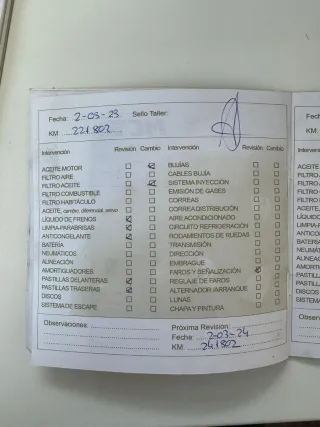 Fecha: 2-03-23 Sello Taller:
KM: 221802
Intervención Revisión Cambio Intervención Revisión Cambio
ACEITE MOTOR BUJÍAS
FILTRO AIRE CABLES BUJÍA
FILTRO ACEITE SISTEMA INYECCIÓN
FILTRO COMBUSTIBLE EMISIÓN DE GASES
FILTRO HABITÁCULO CORREAS
ACEITE, cambio, diferencial, servo CORREA DISTRIBUCIÓN
LÍQUIDO DE FRENOS AIRE ACONDICIONADO
LIMPIA-PARABRISAS CIRCUITO REFRIGERACIÓN
ANTICONGELANTE RODAMIENTOS DE RUEDAS
BATERÍA TRANSMISIÓN
NEUMÁTICOS DIRECCIÓN
ALINEACIÓN EMBRAGUE
AMORTIGUADORES FAROS Y SEÑALIZACIÓN
PASTILLAS DELANTERAS REGLAJE DE FAROS
PASTILLAS TRASERAS ALTERNADOR /ARRANQUE
DISCOS LUNAS
SISTEMA DE ESCAPE CHAPA Y PINTURA
Observaciones: Próxima Revisión:
Fecha: 2-03-24
KM: 241802